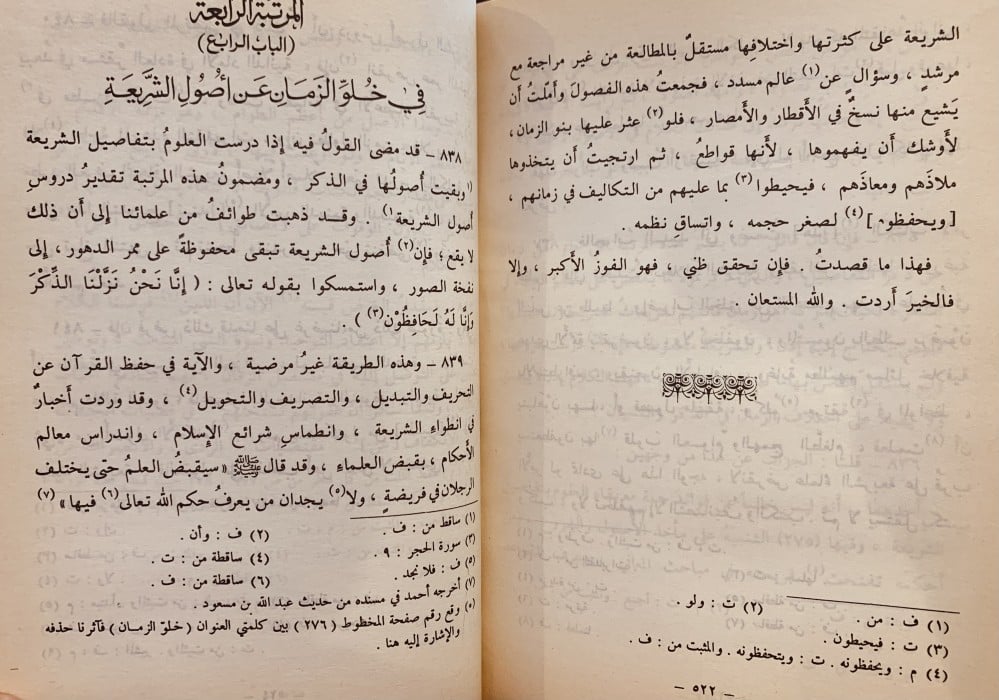 الشريعة على كثرتها واختلافِها مستقلٌّ بالمطالعة من غير مراجعة مع
مرشدٍ ، وسؤال عن(١) عالم مسدد ، فجمعتُ هذه الفصولَ وأمّلتُ أن
يَشيع منها نسخٌ في الأقطار والأمصار ، فلو(٢) عثر عليها بنو الزمان ،
لأوشك أن يفهموها ، لأنها قواطعُ ، ثم ارتجيتُ أن يتخذوها
ملاذَهم ومعاذَهم ، فيحيطوا(٣) بما عليهم من التكاليف في زمانهم ،
[ويحفظوه](٤) لصغر حجمه ، واتساق نظمه .
فهذا ما قصدتُ . فإن تحقق ظني ، فهو الفوزُ الأكبر ، وإلا
فالخيرَ أردت . والله المستعان .
(١) ف : من .
(٢) ت : ولو .
(٣) ت : فيحيطون .
(٤) م : ويحفظونه . ت : ويتحفظونه . والمثبت من : ف .
- ٥٢٢ -
المرتبة الرابعة
(الباب الرابع)
في خلو الزمان عن أصول الشريعة
٨٣٨ - قد مضى القولُ فيه إذا درست العلومُ بتفاصيل الشريعة
(١وبقيت أصولُها في الذكر ، ومضمونُ هذه المرتبة تقديرُ دروسِ
أصول الشريعة١) . وقد ذهبت طوائفُ من علمائنا إلى أن ذلك
لا يقع ؛ فإن(٢) أصول الشريعة تبقى محفوظةً على ممر الدهور ، إلى
نفخة الصور ، واستمسكوا بقوله تعالى : ( إِنَّا نَحْنُ نَزَّلْنَا الذِّكْرَ
وَإِنَّا لَهُ لَحَافِظُوْن(٣) ) .
٨٣٩ - وهذه الطريقة غيرُ مرضية ، والآية في حفظ القرآن عن
التحريف والتبديل ، والتصريف والتحويل(٤) ، وقد وردت أخبارٌ
في انطواء الشريعة ، وانطماسِ شرائع الإسلام ، واندراس معالم
الأحكام ، بقبض العلماء ، وقد قال ﷺ « سيقبضُ العلمُ حتى يختلف
الرجلان في فريضةٍ ، ولا(٥) يجدان من يعرفُ حكم الله تعالى(٦) فيها »(٧)
(١) ساقط من : ف .
(٢) ف : وأن .
(٣) سورة الحجر : ٩ .
(٤) ساقطة من : ت .
(٥) ف : فلا نجد .
(٦) ساقطة من : ف .
(٧) أخرجه أحمد في مسنده من حديث عبد الله بن مسعود .
(٥) وقع رقم صفحة المخطوط ( ٢٧٦ ) بين كلمتي العنوان ( خلوّ الزمان ) فآثرنا حذفه
والإشارة إليه هنا .